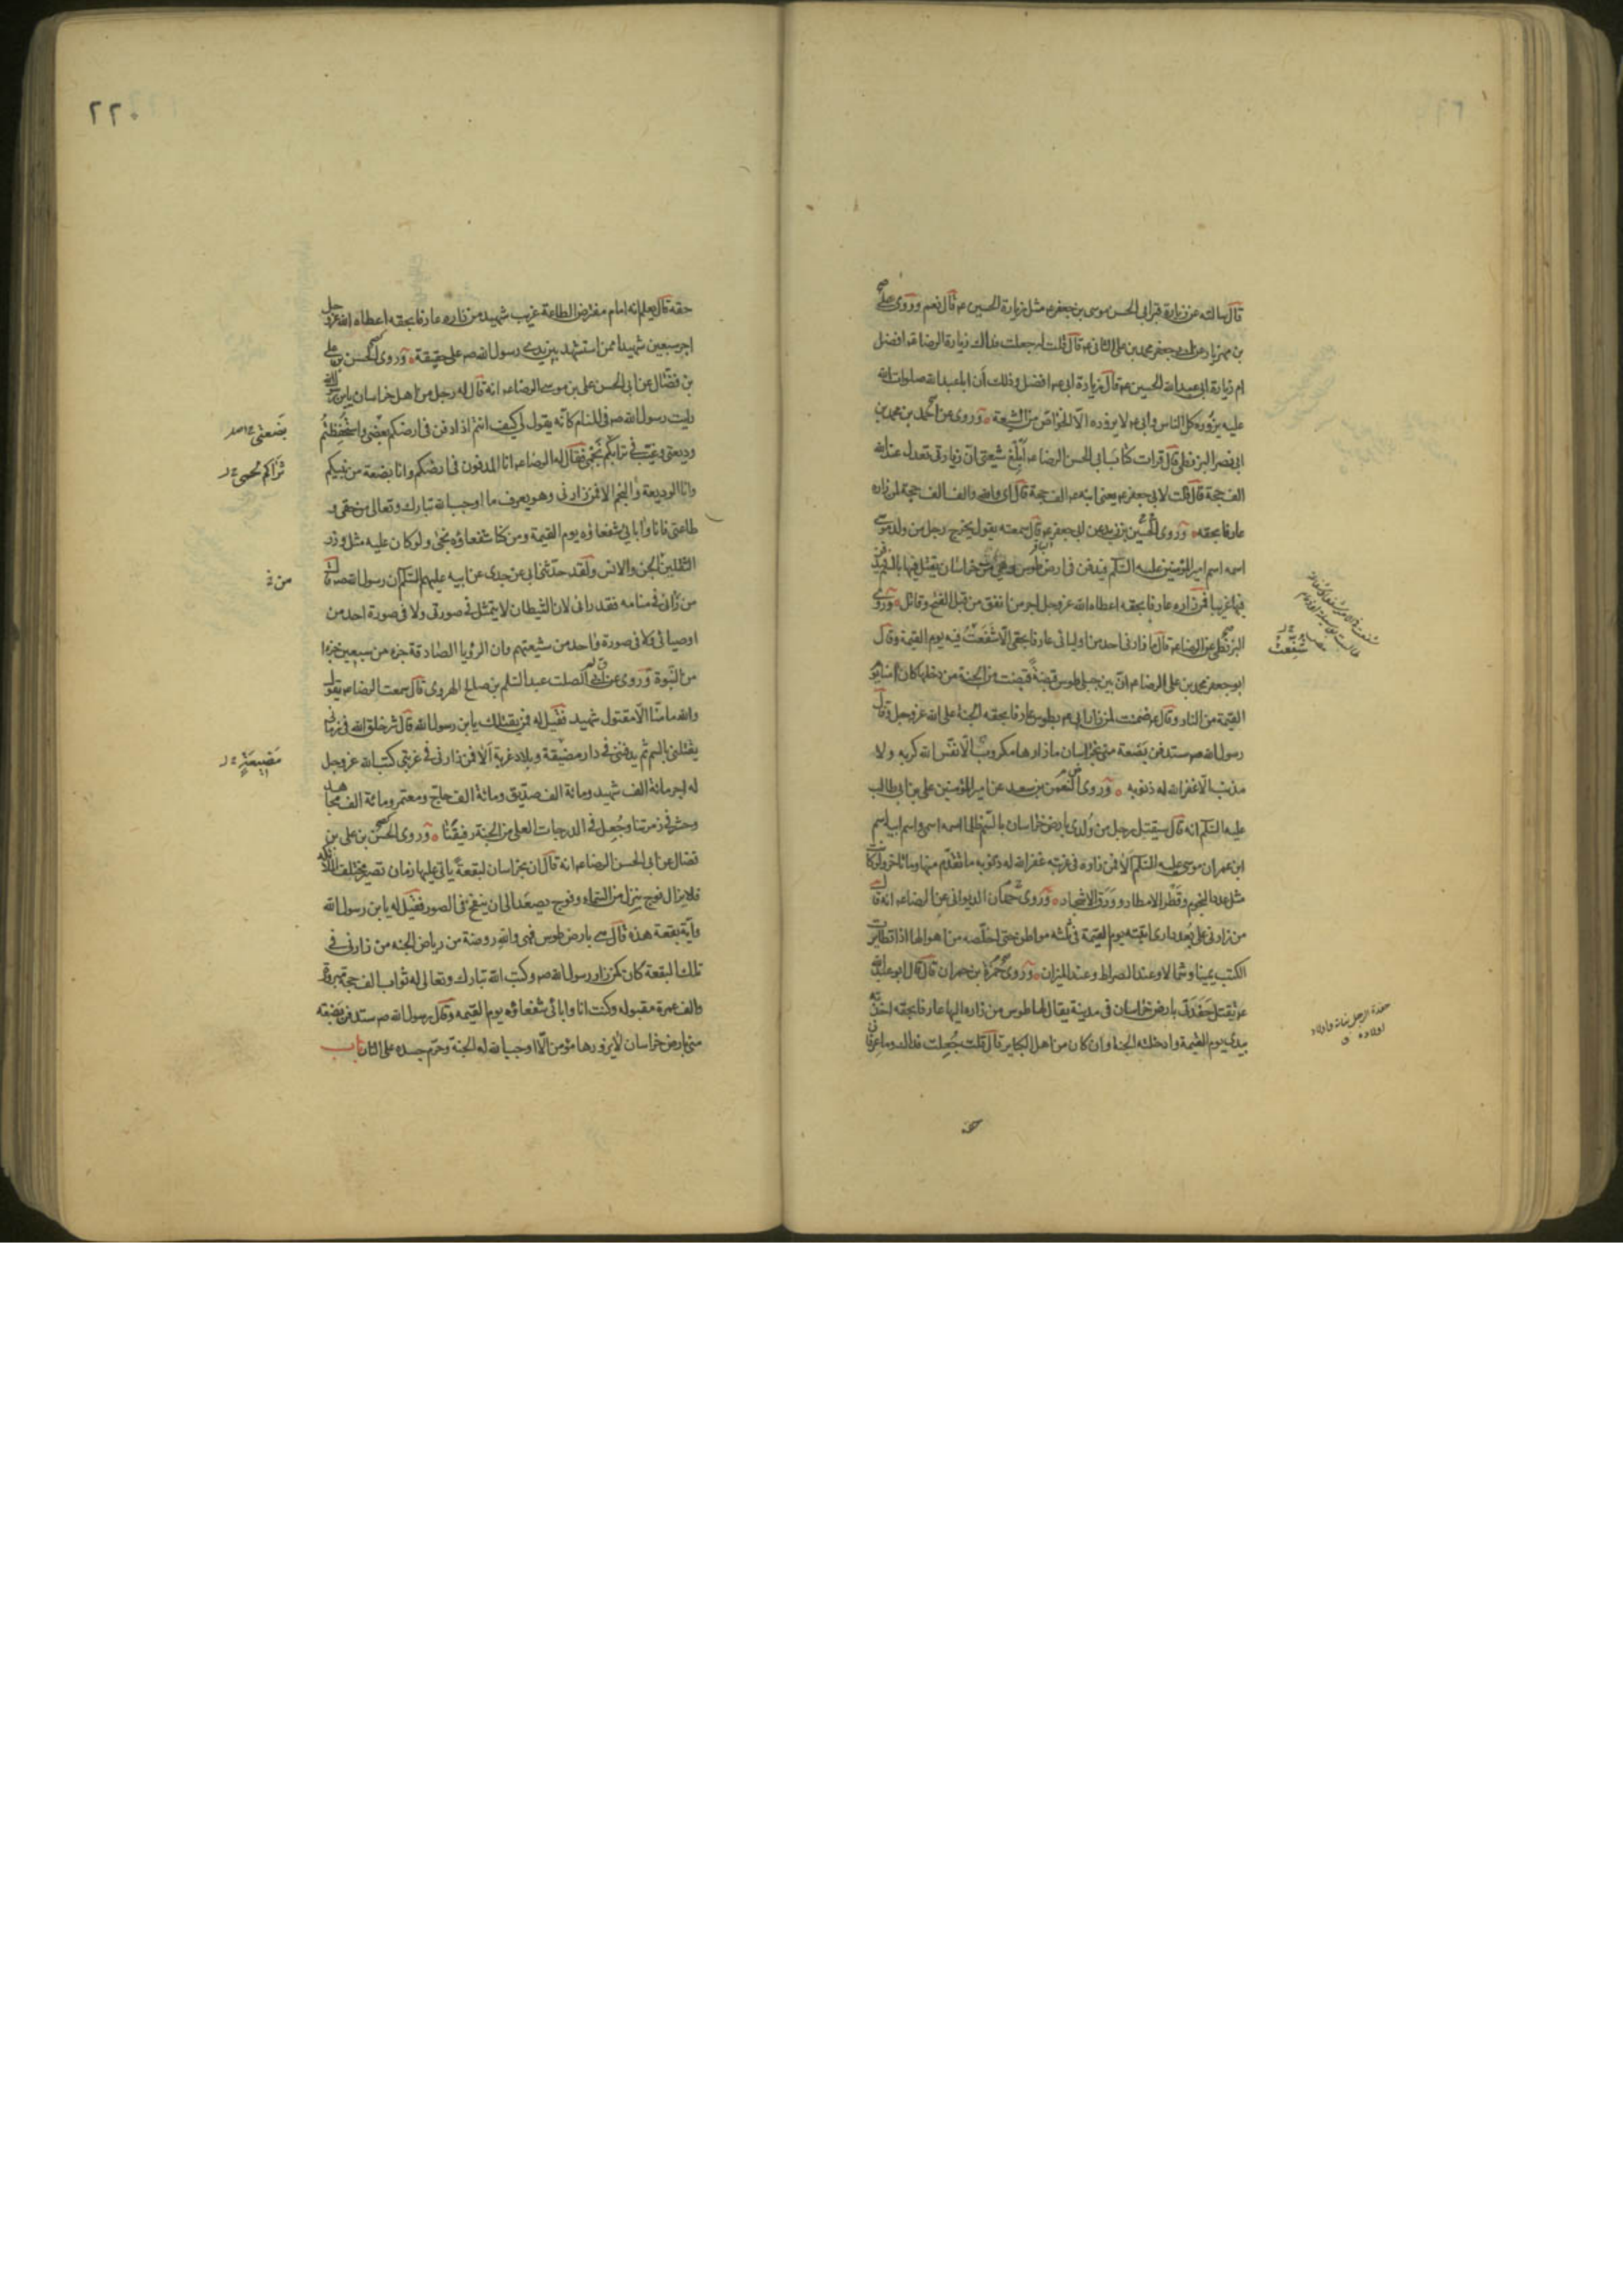 قال سالته عن زيارة قبر ابي الحسن موسى بن جعفر ع مثل زيارة الحسين ع قال نعم وروى علي
بن مهزيار عن ابي جعفر محمد بن علي الثاني ع قال قلت له جعلت فداك زيارة الرضا ع افضل
ام زيارة ابي عبد الله الحسين ع قال زيارة ابي ع افضل وذلك أن ابا عبد الله صلوات الله
عليه يزوره كل الناس وابي ع لا يزوره الا الخواص من الشيعة وروى عن احمد بن محمد بن
ابي نصر البزنطي قال قرات كتاب ابي الحسن الرضا ع ابلغ شيعتي ان زيارتي تعدل عند الله
الف حجة قال قلت لابي جعفر ع يعني ابنه ع الف حجة قال اي والله والف الف حجة لمن زاره
عارفا بحقه وروى الحسين بن زيد عن ابي جعفر ع قال سمعته يقول يخرج رجل من ولد موسى
اسمه اسم امير المؤمنين عليه السلام فيدفن في ارض طوس وهي من خراسان يقتل فيها بالسم فيدفن
فيها غريبا فمن زاره عارفا بحقه اعطاه الله عز وجل اجر من انفق من قبل الفتح وقاتل وروى
البزنطي عن الرضا ع قال ما زارني احد من اوليائي عارفا بحقي الا شفعت فيه يوم القيمة وقال
ابو جعفر محمد بن علي الرضا ع ان بين جبلي طوس قبضة قبضت من الجنة من دخلها كان امنا يوم
القيمة من النار وقال ع ضمنت لمن زار ابي ع بطوس عارفا بحقه الجنة على الله عز وجل وقال
رسول الله ص ستدفن بضعة مني بخراسان ما زارها مكروب الا نفس الله كربه ولا
مذنب الا غفر الله له ذنوبه وروى النعمن بن سعد عن امير المؤمنين علي بن ابي طالب
عليه السلام انه قال سيقتل رجل من ولدي بارض خراسان بالسم ظلما اسمه اسمي واسم ابيه اسم
ابن عمران موسى عليه السلام الا فمن زاره في غربته غفر الله له ذنوبه ما تقدم منها وما تاخر ولو كانت
مثل عدد النجوم وقطر الامطار وورق الاشجار وروى حمدان الديواني عن الرضا ع انه قال
من زارني على بعد داري اتيته يوم القيمة في ثلثه مواطن حتى اخلصه من اهوالها اذا تطايرت
الكتب يمينا وشمالا وعند الصراط وعند الميزان وروى حمزة بن حمران قال قال ابو عبد الله
ع يقتل حفدتي بارض خراسان في مدينة يقال لها طوس من زاره اليها عارفا بحقه اخذته
بيدي يوم القيمة وادخلته الجنة وان كان من اهل الكبائر قال قلت جعلت فداك وما عرفان
شفعت
حفدة الرجل بناته واولاد
اولاده
٢٢٠
حقه قال يعلم انه امام مفترض الطاعة غريب شهيد من زاره عارفا بحقه اعطاه الله عز وجل
اجر سبعين شهيدا ممن استشهد بين يدي رسول الله ص على حقيقة وروى الحسن بن علي
بن فضال عن ابي الحسن علي بن موسى الرضا ع انه قال له رجل من اهل خراسان يابن رسول الله
رايت رسول الله ص في المنام كانه يقول لي كيف انتم اذا دفن في ارضكم بعضي واستحفظتم
وديعتي وغيب في ترابكم نجمي فقال له الرضا ع انا المدفون في ارضكم وانا بضعة من نبيكم
وانا الوديعة والنجم الا فمن زارني وهو يعرف ما اوجب الله تبارك وتعالى من حقي و
طاعتي فانا وابائي شفعاؤه يوم القيمة ومن كنا شفعاؤه نجى ولو كان عليه مثل وزر
الثقلين الجن والانس ولقد حدثني ابي عن جدي عن ابيه عليهم السلام ان رسول الله ص قال
من رآني في منامه فقد راني لان الشيطان لا يتمثل في صورتي ولا في صورة احد من
اوصيائي ولا في صورة واحد من شيعتهم وان الرؤيا الصادقة جزء من سبعين جزءا
من النبوة وروى عن ابي الصلت عبد السلم بن صالح الهروي قال سمعت الرضا ع يقول
والله ما منا الا مقتول شهيد فقيل له فمن يقتلك يابن رسول الله قال شر خلق الله في زماني
يقتلني بالسم ثم يدفنني في دار مضيقة وبلاد غربة الا فمن زارني في غربتي كتب الله عز وجل
له اجر مائة الف شهيد ومائة الف صديق ومائة الف حاج ومعتمر ومائة الف مجاهد
وحشر في زمرتنا وجعل في الدرجات العلى من الجنة رفيقنا وروى الحسن بن علي بن
فضال عن ابي الحسن الرضا ع انه قال ان بخراسان لبقعة ياتي عليها زمان تصير مختلف الملائكة
فلا يزال فوج ينزل من السماء وفوج يصعد الى ان ينفخ في الصور فقيل له يابن رسول الله
واية بقعة هذه قال هي بارض طوس فهي والله روضة من رياض الجنه من زارني في
تلك البقعة كان كمن زار رسول الله ص وكتب الله تبارك وتعالى له ثواب الف حجة مبرورة
والف عمرة مقبوله وكنت انا وابائي شفعاؤه يوم القيمه وقال رسول الله ص ستدفن بضعة
مني بارض خراسان لا يزورها مؤمن الا اوجب الله له الجنة وحرم جسده على النار باب
بضعتي
ثراكم
من
مضيعة